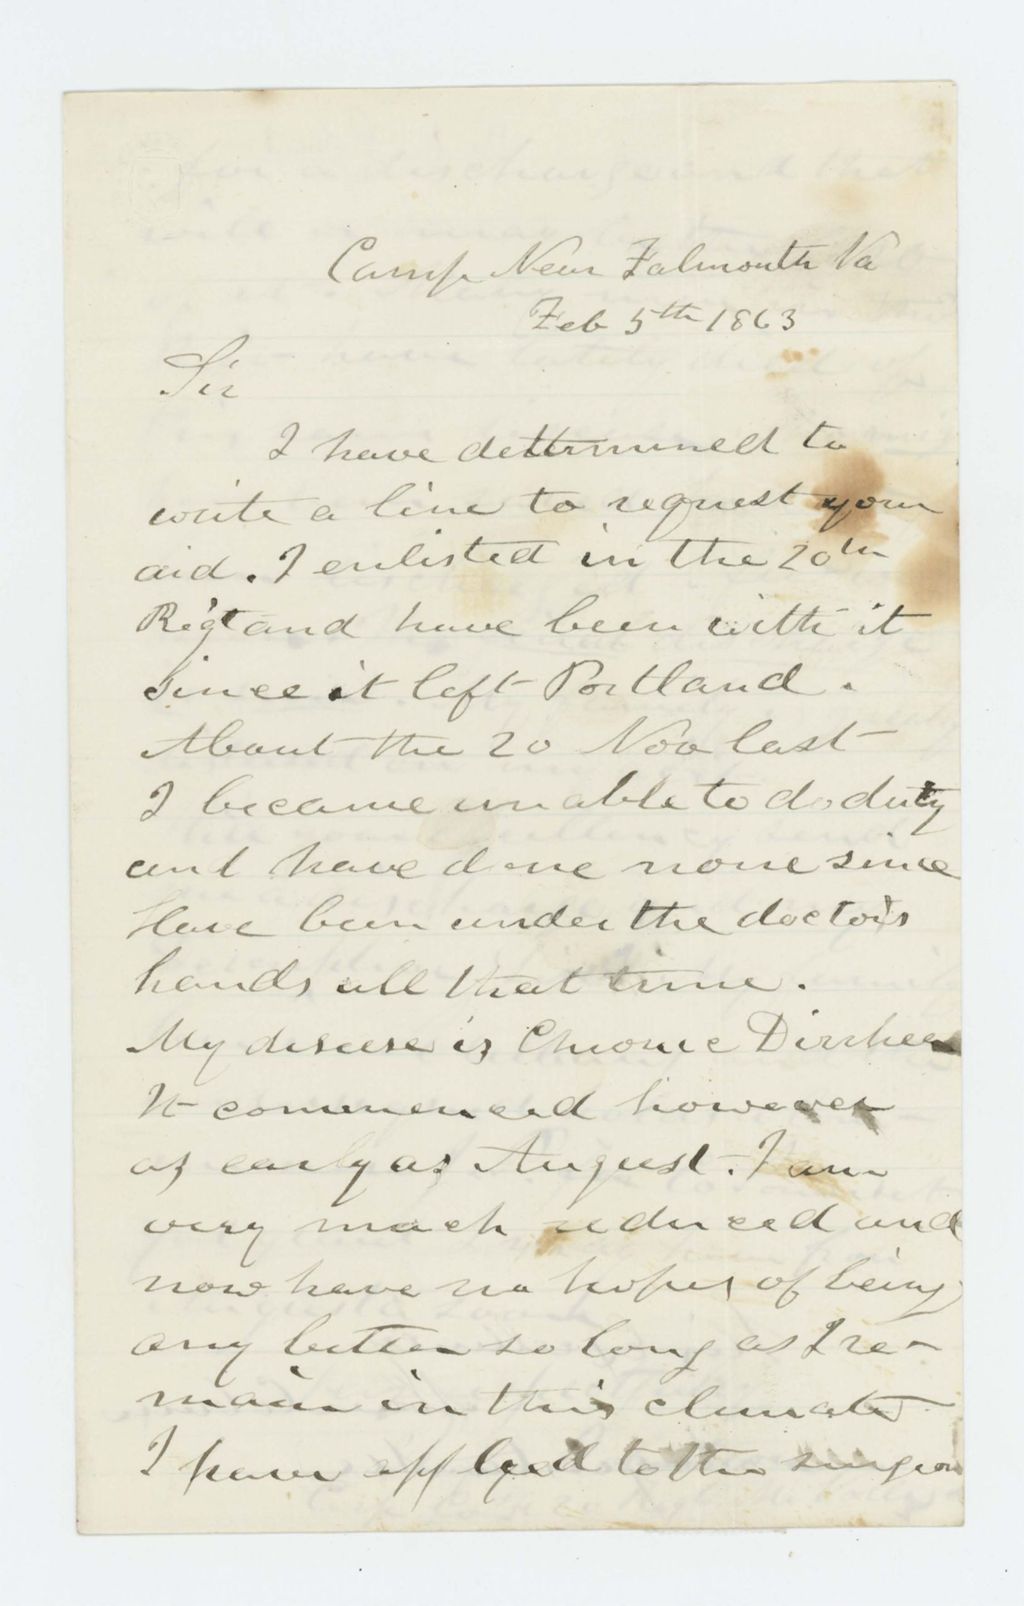 Camp Near Falmouth Va
Feb 5th 1863
Sir
I have dettermined to
write a line to request your
aid. I enlisted in the 20th
Regt and have been with it
since it left Portland.
About the 20 Nov last
I became unable to do duty
and have done none since
Have been under the doctors
hands all that time.
My disease is Chronic Dirrhea
It commenced however
as early as August. I am
very much reduced and
now have no hopes of being
any better so long as I re-
main in this climate
I have applyed to the surgeon